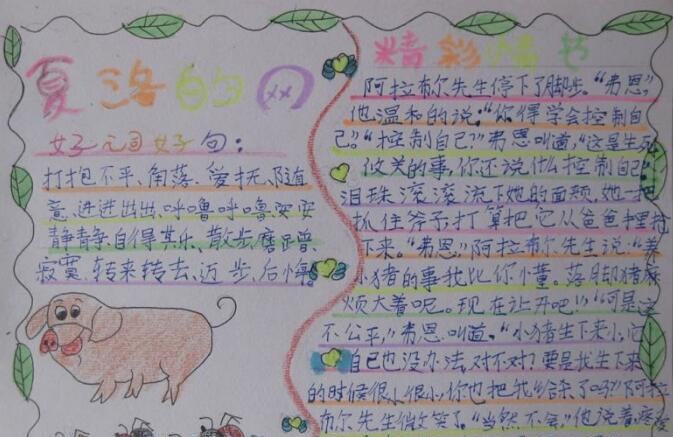 夏洛的网
好词好句：
打抱不平、角落、爱抚、随
意、进进出出、呼噜呼噜、安安
静静、自得其乐、散步、磨蹭、
寂寞、转来转去、迈步、后悔。
精彩情节
阿拉布尔先生停下了脚步。“弗恩”，
他温和的说：“你得学会控制自
己。”“控制自己？”弗恩叫道，“这是生死
攸关的事，你还说什么控制自己。”
泪珠滚滚流下她的面颊，她一把
抓住斧子，打算把它从爸爸手里抢
下来。“弗恩，”阿拉布尔先生说“养
小猪的事我比你懂。落脚猪麻
烦大着呢。现在让开吧！”“可是这
不公平，”弗恩叫道。“小猪生下来小，它
自己也没办法，对不对？要是我生下来
的时候很小很小，你也把我给杀了吗？”阿拉
布尔先生微笑了。“当然不会，”他说着疼爱